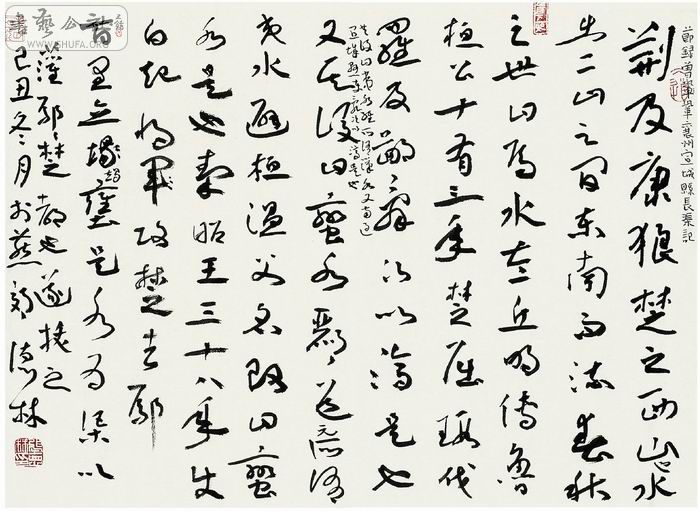 節錄曾鞏襄州宜城縣長渠記
荆及康狼楚之西山也水
出二山之間東南而流春秋
之世曰鄢水左丘明傳魯
桓公十有三年楚屈瑕伐
羅及鄢々亂次以濟是也
其後曰夷水水經所謂漢水又南過
宜城縣東夷水注之是也
又其後曰蠻水酈道元所謂
夷水避桓溫父名改曰蠻
水是也秦昭王三十八年使
白起將軍攻楚去鄢
百里立堨壅是水為渠以
灌鄢々楚都也遂拔之
己丑冬月於燕郊德林
書藝公社
WWW.SHUFA.ORG